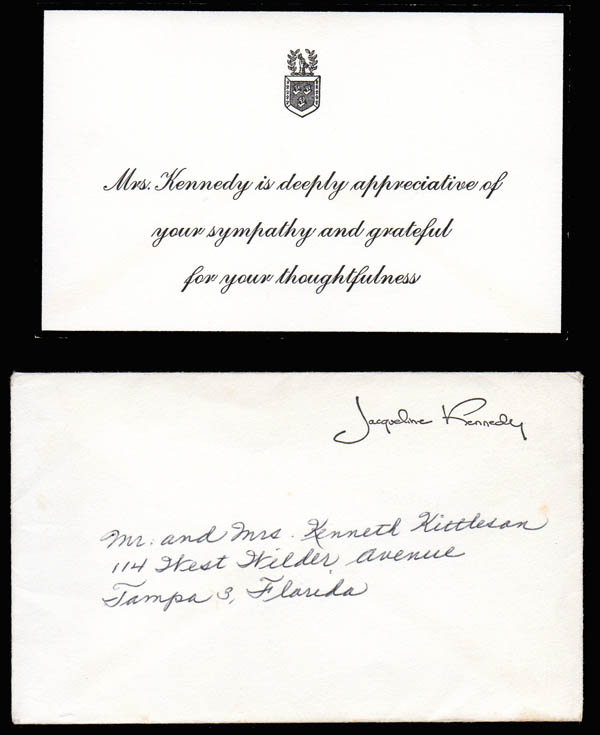 Mrs. Kennedy is deeply appreciative of
your sympathy and grateful
for your thoughtfulness
Jacqueline Kennedy
Mr. and Mrs. Kenneth Kittleson
114 West Wilder Avenue
Tampa 3, Florida